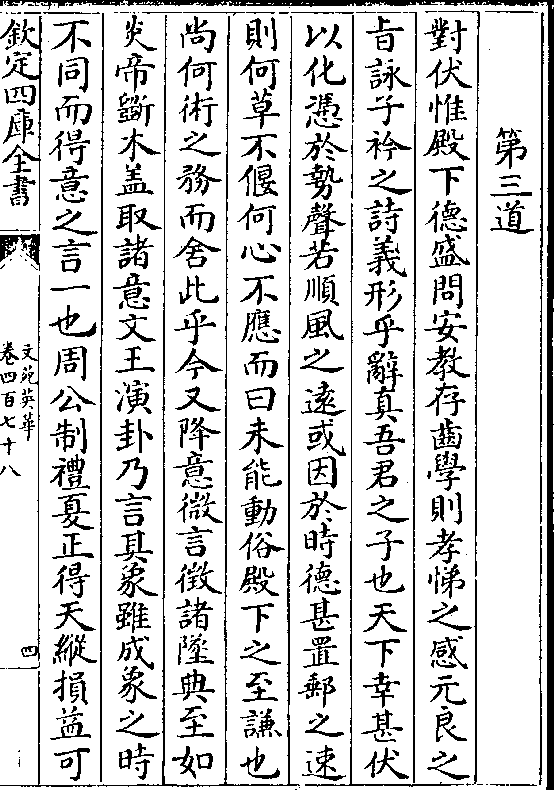 第三道
對伏惟殿下德盛問安教存齒學則孝悌之感元良之
㫖詠子衿之詩義形乎辭真吾君之子也天下幸甚伏
以化憑於勢聲若順風之遠或因於時德甚置郵之速
則何草不偃何心不應而曰未能動俗殿下之至謙也
尚何術之務而舍此乎今又降意微言徴諸墜典至如
炎帝斵木盖取諸意文王演卦乃言其象雖成象之時
不同而得意之言一也周公制禮夏正得天縱損益可
欽定四庫全書
文苑英華
卷四百七十八
四